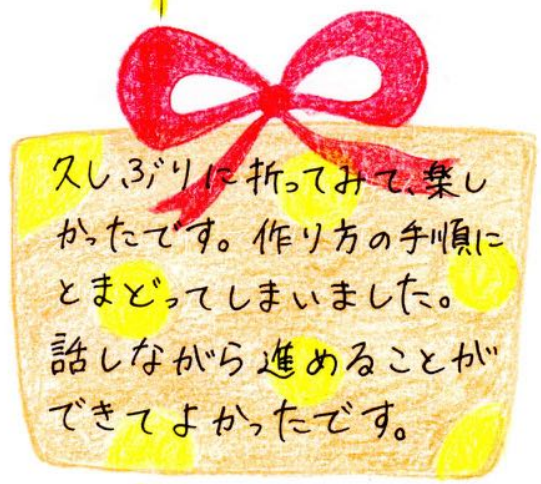 久しぶりに折ってみて、楽し
かったです。作り方の手順に
とまどってしまいました。
話しながら進めることが
できてよかったです。